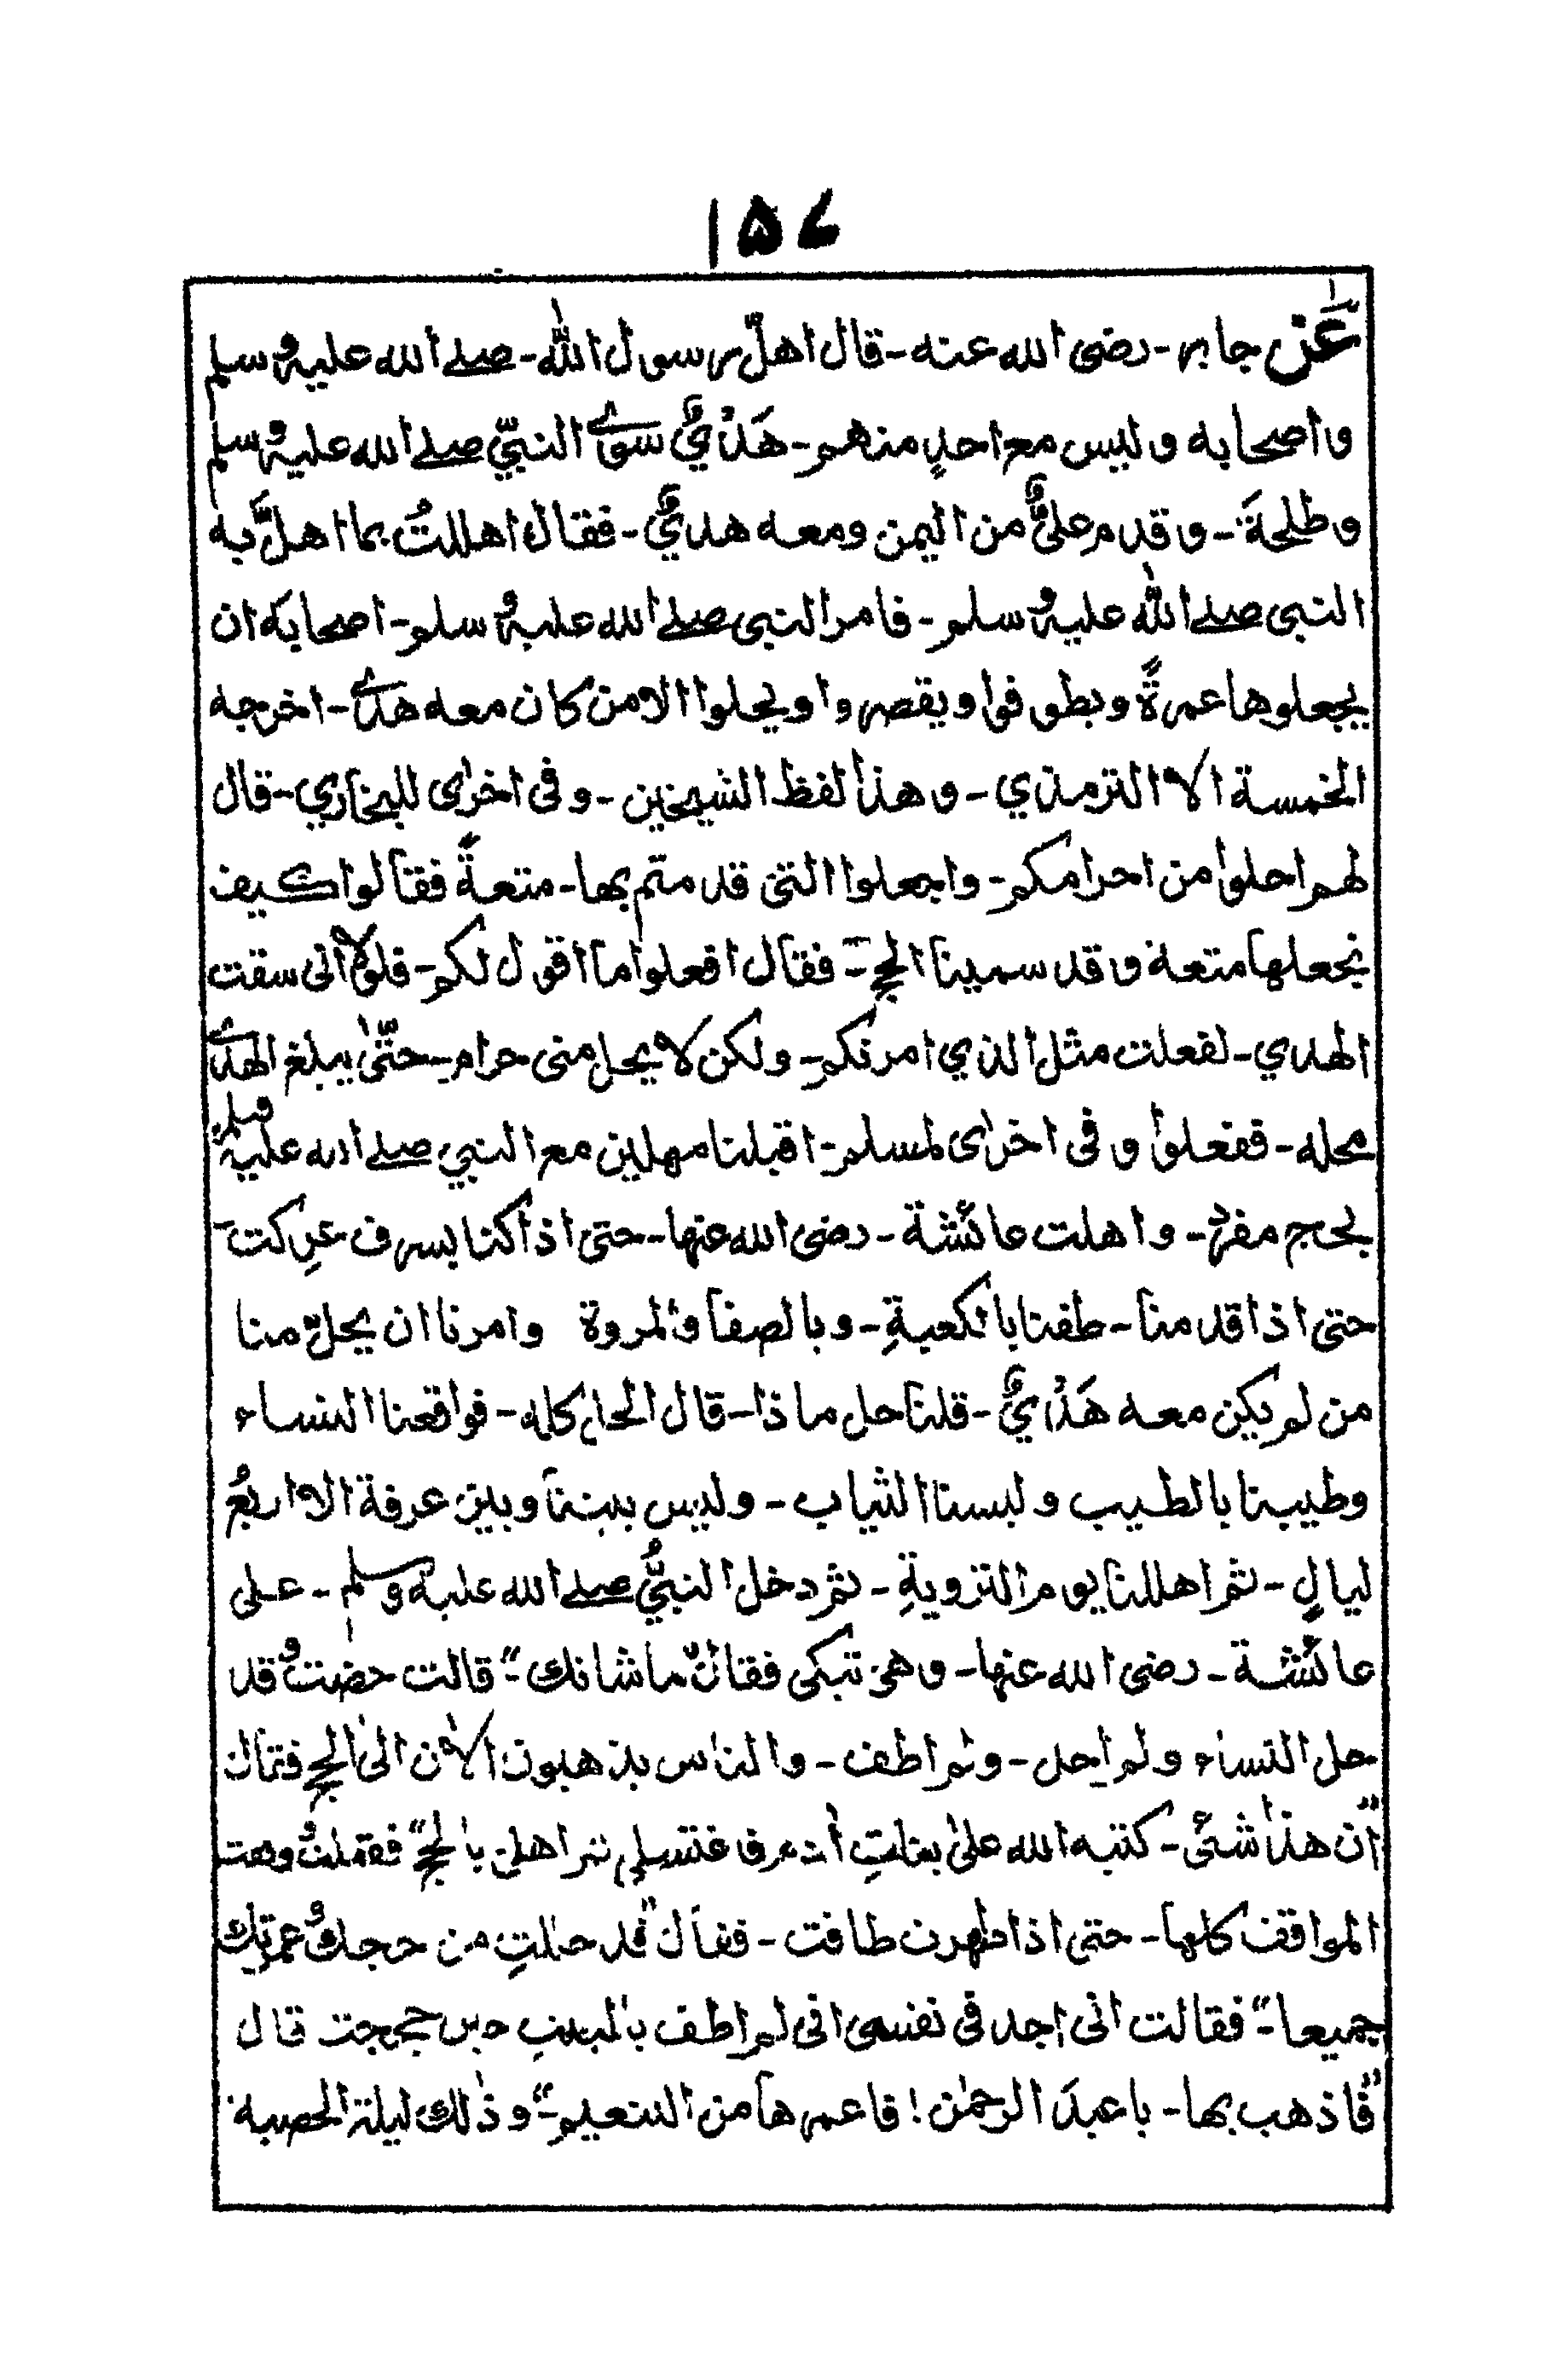 ۱۵۷
عَن جابر۔ رضی الله عنه۔ قال اهلّ رسول الله۔ صلے الله علیه وسلم
واصحابه ولیس مع احدٍ منهم۔ هَدْيٌ سوی النبیّ صلے الله علیه وسلم
وطلحةَ۔ وقدم علیٌّ من الیمن ومعه هديٌ۔ فقال اهللتُ بما اهلَّ به
النبی صلے الله علیه وسلم۔ فامر النبی صلے الله علیه وسلم۔ اصحابه ان
یجعلوها عمرةً ویطوفوا ویقصروا ویحلوا الا من کان معه هدی۔ اخرجه
الخمسة الا الترمذي۔ وهذا لفظ الشیخین۔ وفی اخرٰی للبخاري۔ قال
لهم احلوا من احرامکم۔ واجعلوا التی قدمتم بها۔ متعةً فقالوا کیف
نجعلها متعة وقد سمینا الحج۔ فقال افعلوا ما اقول لکم۔ فلولا انی سقت
الهدي۔ لفعلت مثل الذي امرتکم۔ ولکن لا یحل منی حرام۔ حتّیٰ یبلغ الهدی
محله۔ ففعلوا وفی اخرٰی لمسلم۔ اقبلنا مهلین مع النبي صلے الله علیه وسلم
بحج مفرد۔ واهلت عائشة۔ رضی الله عنها۔ حتی اذا کنا بسرف عرکت۔
حتی اذا قدمنا۔ طفنا بالکعبةِ۔ وبالصفا والمروة وامرنا ان یحلّ منا
من لم یکن معه هَدْيٌ۔ قلنا حل ماذا۔ قال الحل کله۔ فواقعنا النساء
وطیبنا بالطیب ولبسنا الثیاب۔ ولیس بیننا وبین عرفة الا اربعُ
لیالٍ۔ ثم اهللنا یوم الترویةِ۔ ثم دخل النبیُّ صلے الله علیه وسلم۔ علی
عائشة۔ رضی الله عنها۔ وهی تبکی فقال ”ما شانك“۔ قالت حضت وقد
حل النساء ولم احل۔ ولم اطف۔ والناس یذهبون الاٰن الی الحج فقال
”ان هذا شئی۔ کتبه الله علیٰ بناتِ اٰدم فاغتسلي ثم اهلی بالحج“ ففعلتْ ووقفت
المواقف کلها۔ حتی اذا طهرت طافت۔ فقال ”قد حللتِ من حجك وعمرتك
جمیعا“۔ فقالت انی اجد فی نفسی انی لم اطف بالبیت حین حججت قال
”فاذهب بها۔ یا عبدَ الرحمٰن! فاعمرها من التنعیم“۔ وذٰلك لیلة الحصبه